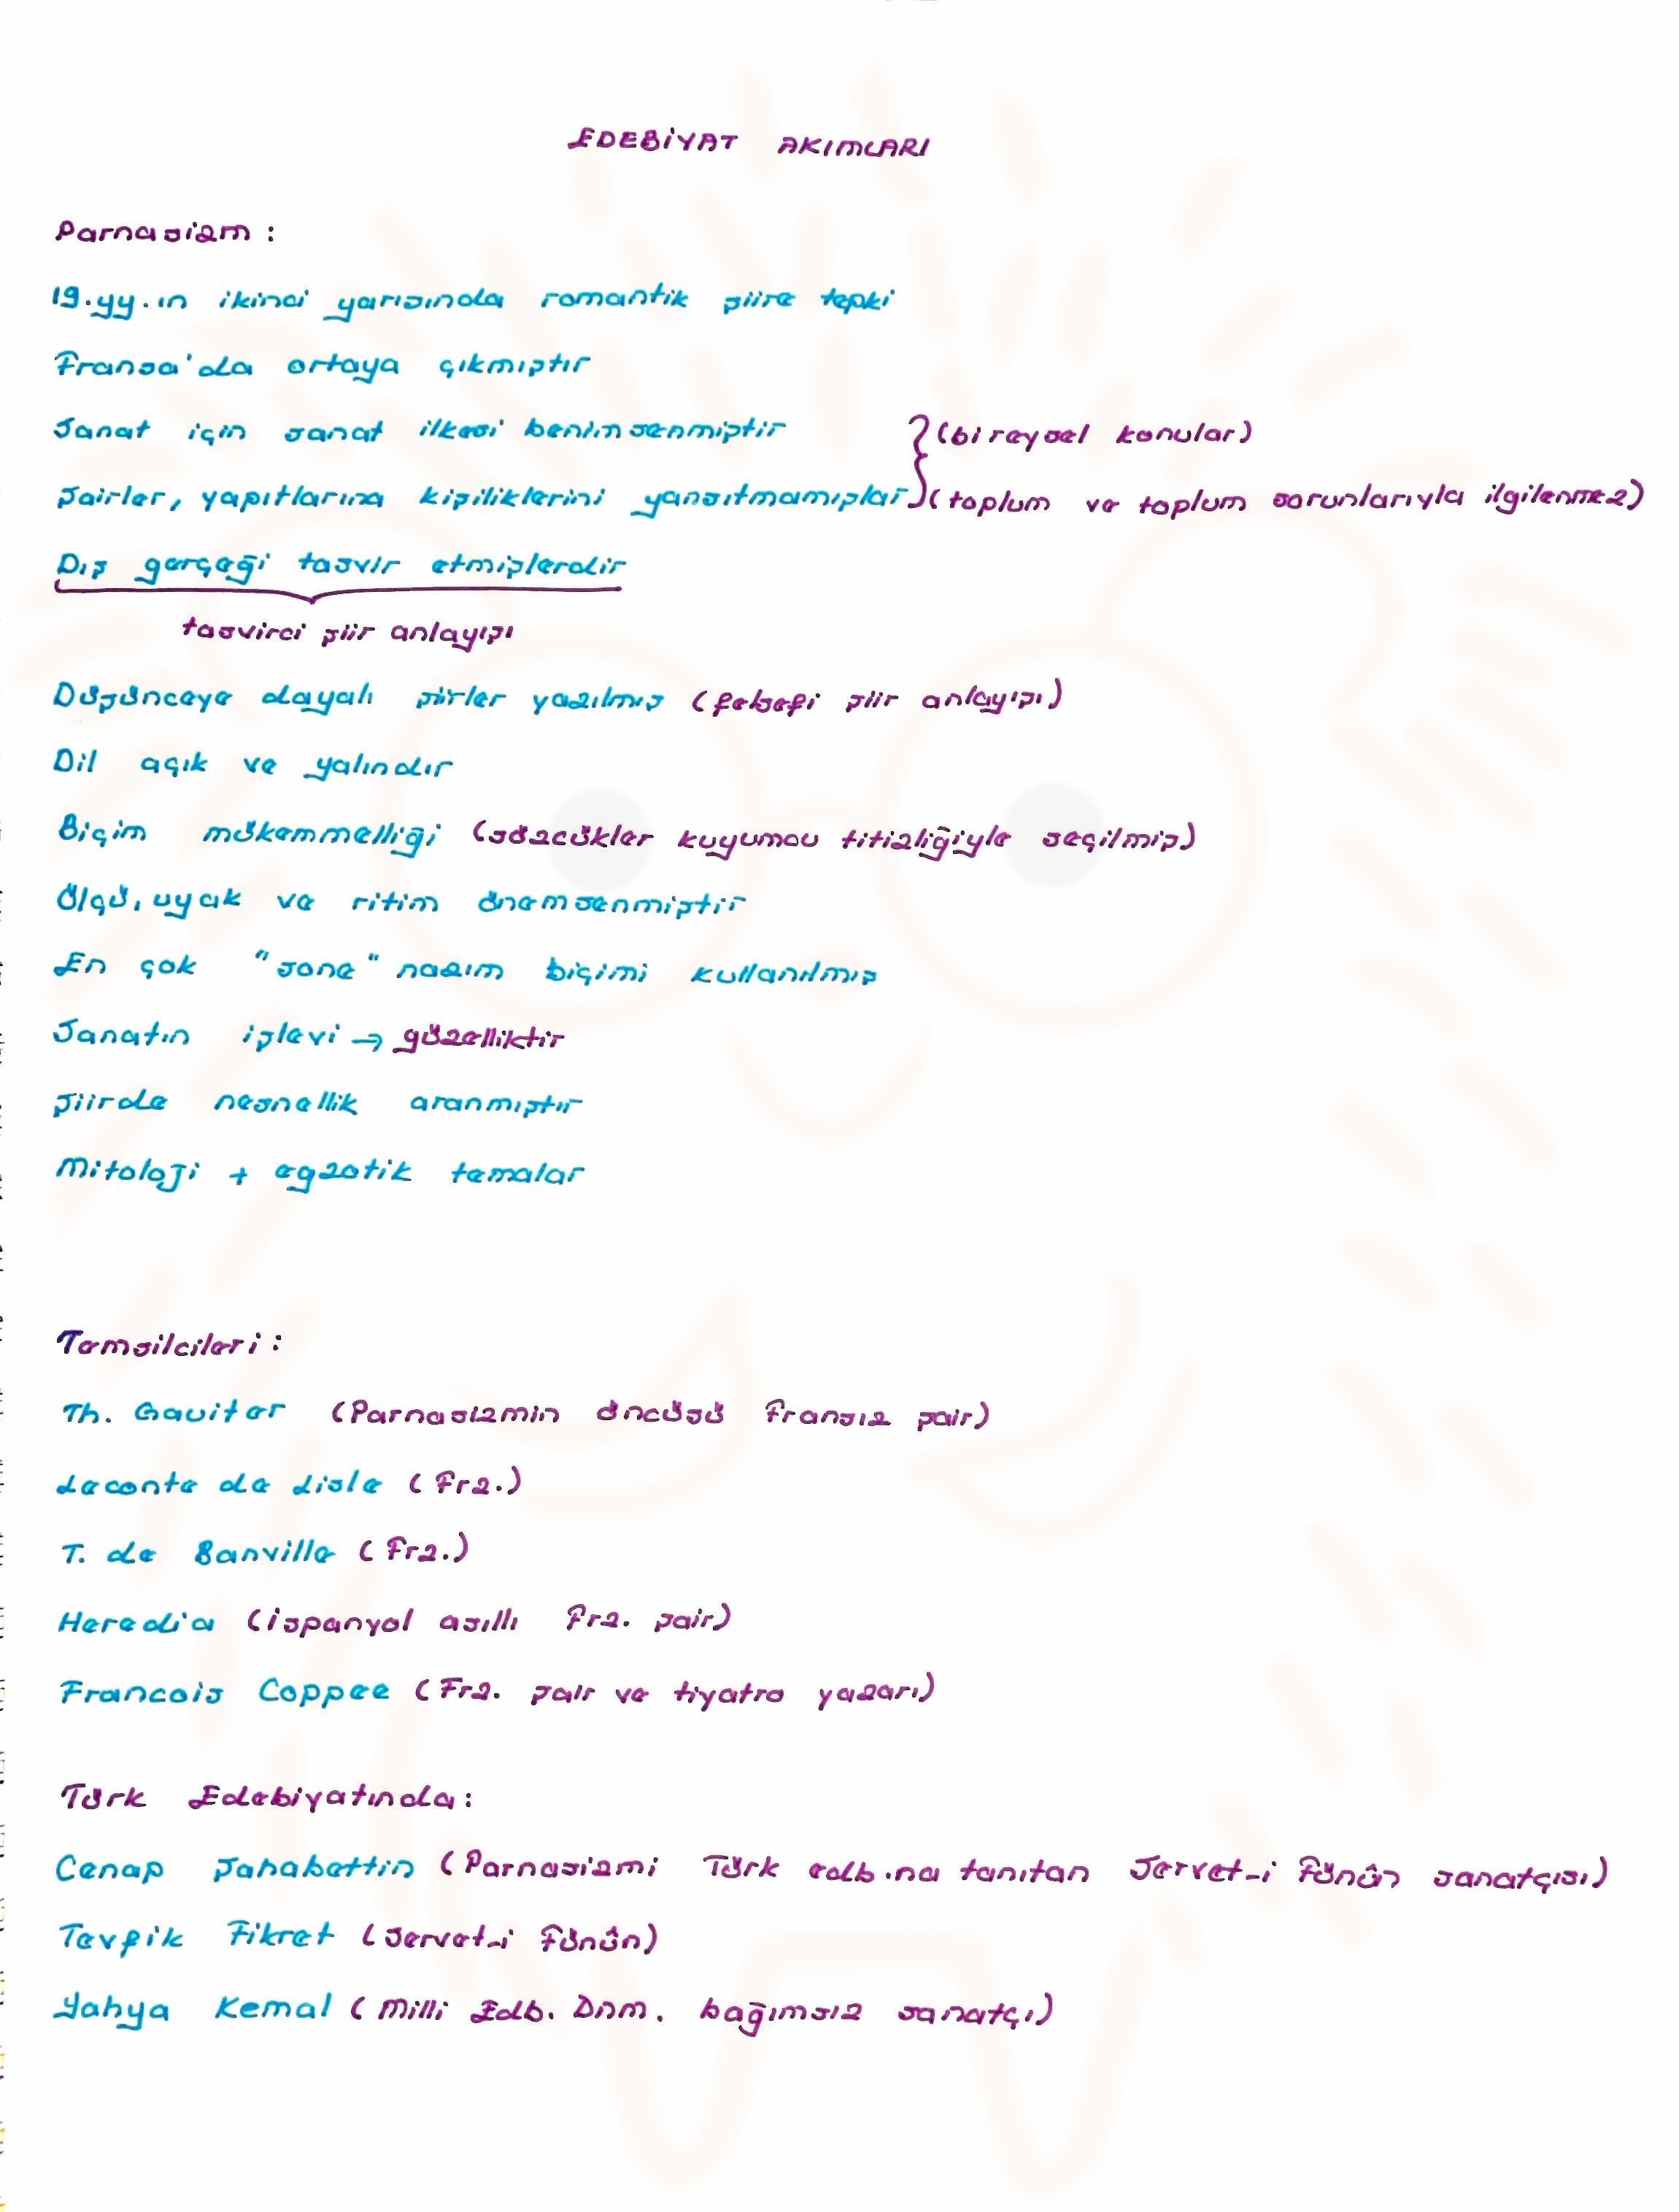 EDEBİYAT AKIMLARI
Parnasizm :
19.yy.ın ikinci yarısında romantik şiire tepki
Fransa'da ortaya çıkmıştır
Sanat için sanat ilkesi benimsenmiştir (bireysel konular)
Şairler, yapıtlarına kişiliklerini yansıtmamışlar (toplum ve toplum sorunlarıyla ilgilenmez)
Dış gerçeği tasvir etmişlerdir
tasvirci şiir anlayışı
Düşünceye dayalı şiirler yazılmış (felsefi şiir anlayışı)
Dil açık ve yalındır
Biçim mükemmelliği (sözcükler kuyumcu titizliğiyle seçilmiş)
Ölçü, uyak ve ritim önemsenmiştir
En çok "sone" nazım biçimi kullanılmış
Sanatın işlevi → güzelliktir
Şiirde nesnellik aranmıştır
Mitoloji + egzotik temalar
Temsilcileri :
Th. Gauiter (Parnasizmin öncüsü Fransız şair)
Leconte de Lisle (Frz.)
T. de Banville (Frz.)
Heredia (İspanyol asıllı Frz. şair)
Francois Coppee (Frz. şair ve tiyatro yazarı)
Türk Edebiyatında:
Cenap Şahabettin (Parnasizmi Türk edb.na tanıtan Servet-i Fünûn sanatçısı)
Tevfik Fikret (Servet-i Fünûn)
Yahya Kemal (Milli Edb. Dnm. bağımsız sanatçı)